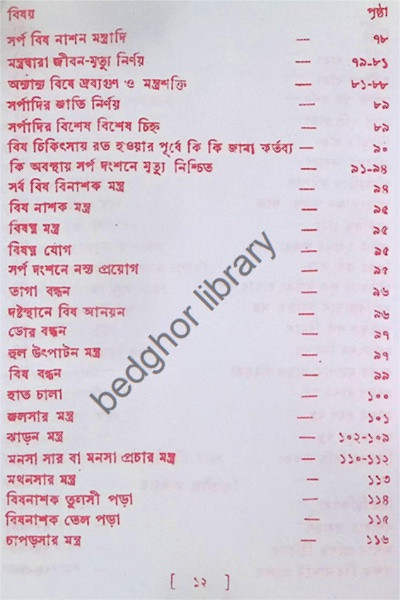 বিষয় পৃষ্ঠা
সর্প বিষ নাশন মন্ত্রাদি — ৭৮
মন্ত্রদ্বারা জীবন-মৃত্যু নির্ণয় — ৭৯-৮১
অন্যান্য বিষে দ্রব্যগুণ ও মন্ত্রশক্তি — ৮১-৮৮
সর্পাদির জাতি নির্ণয় — ৮৯
সর্পাদির বিশেষ বিশেষ চিহ্ন — ৮৯
বিষ চিকিৎসায় রত হওয়ার পূর্বে কি কি জানা কর্তব্য — ৯০
কি অবস্থায় সর্প দংশনে মৃত্যু নিশ্চিত — ৯১-৯৪
সর্ব বিষ বিনাশক মন্ত্র — ৯৪
বিষ নাশক মন্ত্র — ৯৫
বিষঘ্ন মন্ত্র — ৯৫
বিষঘ্ন যোগ — ৯৫
সর্প দংশনে নস্য প্রয়োগ — ৯৫
তাগা বন্ধন — ৯৬
দষ্টস্থানে বিষ আনয়ন — ৯৬
ডোর বন্ধন — ৯৭
হুল উৎপাটন মন্ত্র — ৯৭
বিষ বন্ধন — ৯৯
হাত চালা — ১০০
জলসার মন্ত্র — ১০১
ঝাড়ন মন্ত্র — ১০২-১০৯
মনসা সার বা মনসা প্রচার মন্ত্র — ১১০-১১২
মথনসার মন্ত্র — ১১৩
বিষনাশক তুলসী পড়া — ১১৪
বিষনাশক তেল পড়া — ১১৫
চাপড়সার মন্ত্র — ১১৬
[ ১২ ]
bedghor library